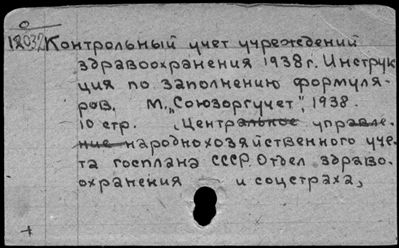 0
18032 Контрольный учет учреждений
здравоохранения 1938 г. Инструк
ция по заполнению формуля-
ров. М., "Союзоргучет", 1938.
10 стр. (Центральное управле-
ние народнохозяйственного уче-
та госплана СССР. Отдел здраво-
охранения и соцстраха,
+